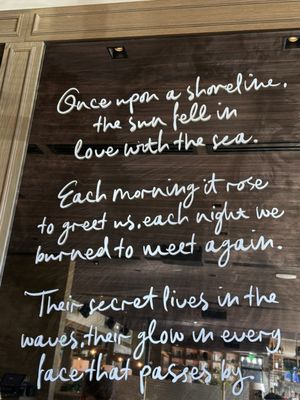 Once upon a shoreline,
the sun fell in
love with the sea.
Each morning it rose
to greet us, each night we
burned to meet again.
Their secret lives in the
waves, their glow in every
face that passes by.